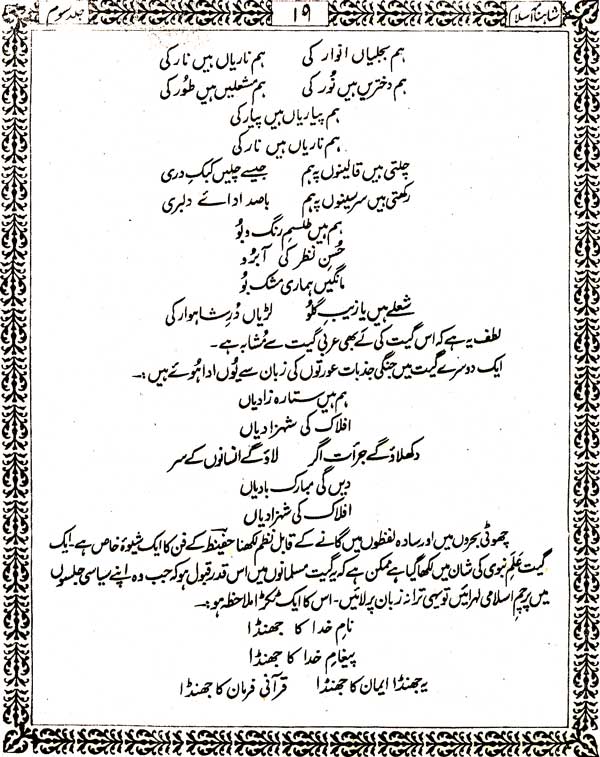 شاہنامۂ اسلام ۱۹ جلد سوم
ہم بجلیاں انوار کی ہم ناریاں ہیں نار کی
ہم دختریں ہیں نُور کی ہم مشعلیں ہیں طُور کی
ہم پیاریاں ہیں پیار کی
ہم ناریاں ہیں نار کی
چلتی ہیں قالینوں پہ ہم جیسے چلیں کبکِ دری
رکھتی ہیں سر سینوں پہ ہم باصد ادائے دلبری
ہم ہیں طلسمِ رنگ و بُو
حُسنِ نظر کی آبرُو
مانگیں ہماری مشک بُو
شعلے ہیں یا زیبِ گلُو لڑیاں دُرِ شاہوار کی
لطف یہ ہے کہ اس گیت کی لَے بھی عربی گیت سے مُشابہ ہے۔
ایک دوسرے گیت میں جنگی جذبات عورتوں کی زبان سے یُوں ادا ہُوئے ہیں:۔
ہم ہیں ستارہ زادیاں
افلاک کی شہزادیاں
دکھلاؤ گے جرأت اگر لاؤ گے انسانوں کے سر
دیں گی مبارک بادیاں
افلاک کی شہزادیاں
چھوٹی بحروں میں اور سادہ لفظوں میں گانے کے قابل نظم لکھنا حفیظؔ کے فن کا ایک شیوۂ خاص ہے۔ ایک
گیت عَلَمِ نبوی کی شان میں لکھا گیا ہے ممکن ہے کہ یہ گیت مسلمانوں میں اس قدر قبول ہو کہ جب وہ اپنے سیاسی جلسوں
میں پرچمِ اسلامی لہرائیں تو یہی ترانہ زبان پر لائیں۔ اس کا ایک ٹکڑا ملاحظہ ہو:۔
نامِ خدا کا جھنڈا
پیغامِ خدا کا جھنڈا
یہ جھنڈا ایمان کا جھنڈا قرآنی فرمان کا جھنڈا